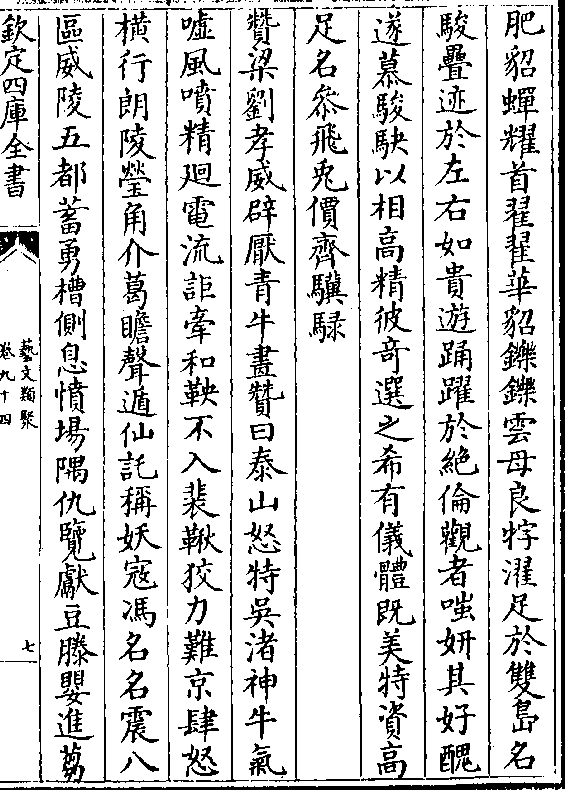 肥貂蟬耀首翟翟華貂鑠鑠雲母良牸濯足於雙島名
駿疊迹於左右如貴遊踊躍於絶倫觀者嗤妍其好醜
遂慕駿駃以相高精彼奇選之希有儀體既美特資高
足名叅飛兎價齊驥騄
贊梁劉孝威辟厭青牛畫贊曰泰山怒特吳渚神牛氣
嘘風噴精廻電流詎牽和鞅不入裴鞦狡力難京肆怒
横行朗陵瑩角介葛瞻聲遁仙託稱妖寇馮名名震八
區威陵五都蓄勇槽側息憤場隅仇覽獻豆滕嬰進芻
欽定四庫全書
藝文類聚
卷九十四
七